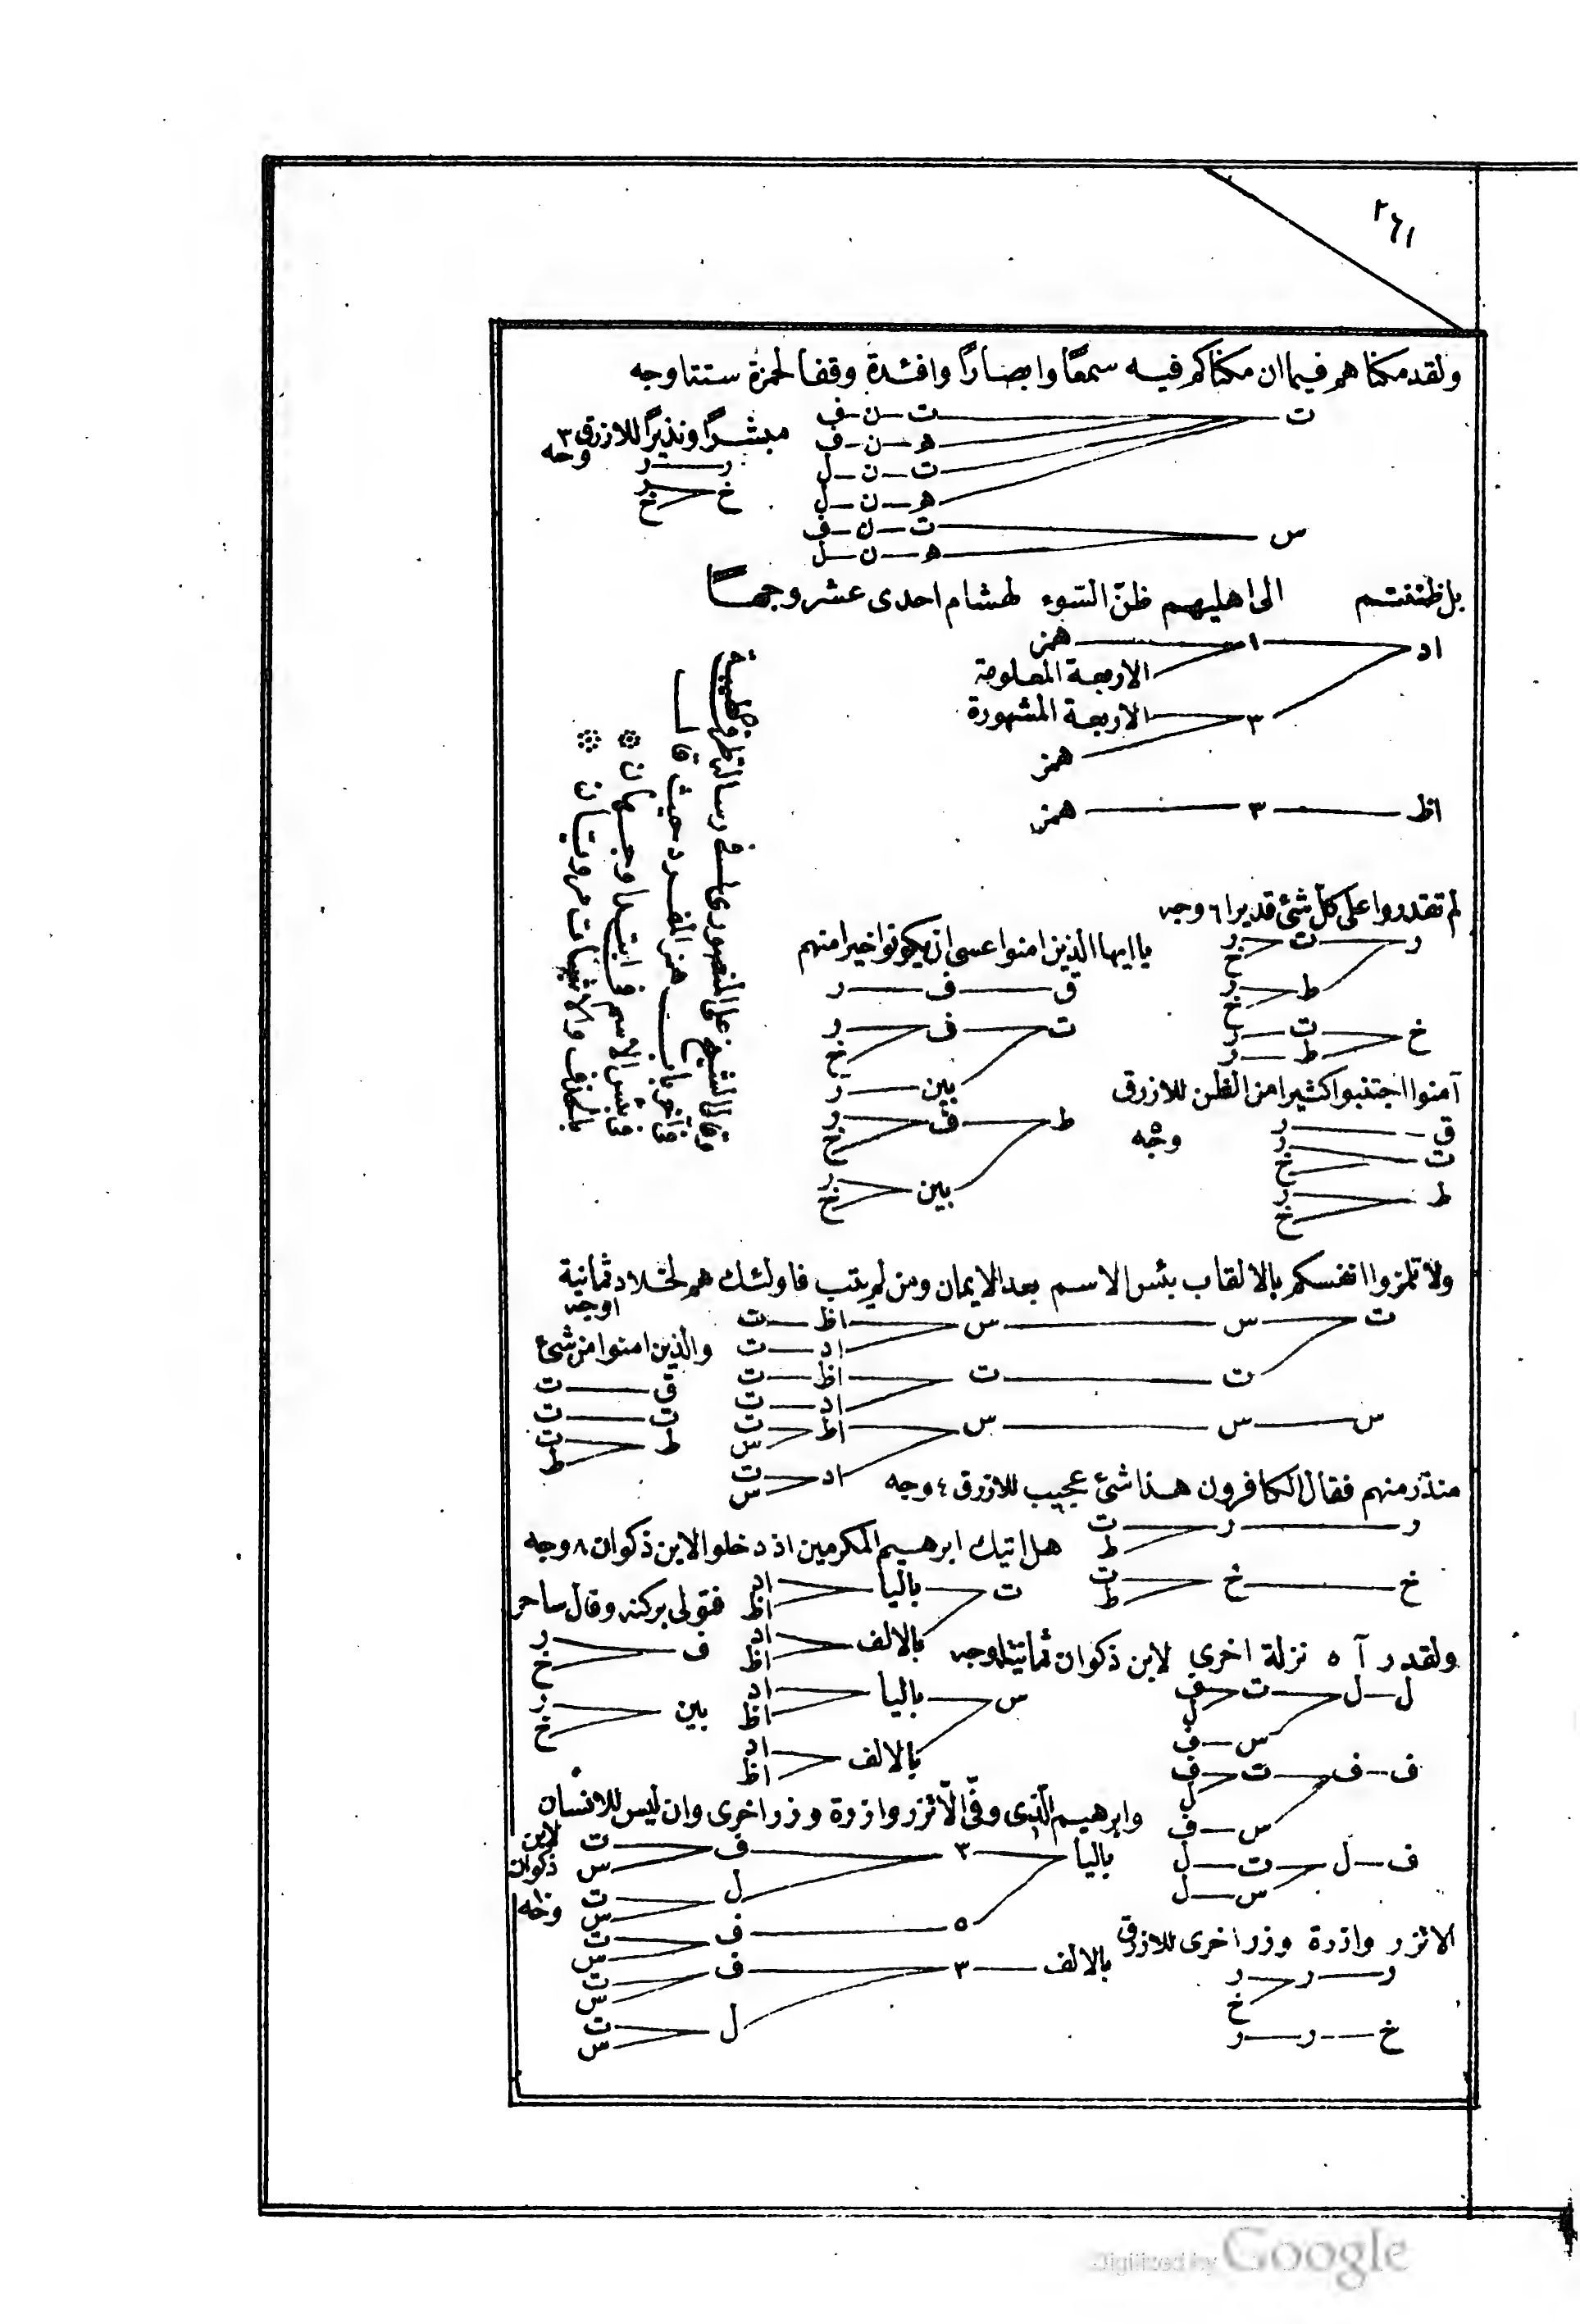 ٢٦١
ولقد مكناهم فيما ان مكناكم فيه سمعًا وابصارًا وافئدة وقفا لحمزة ستة اوجه
ت ت—ن—ف
ه—ن—ف
ت—ن—ل
ه—ن—ل
س ت—ن—ف
ه—ن—ل
مبشرًا ونذيرًا للازرق ٣ وجه
ر—ر
خ ر
خ
بل ظننتم الى اهليهم ظنّ السّوء لهشام احدى عشر وجهـًا
اد ١ همز
الاربعة المعلومة
٣ الاربعة المشهورة
همز
اظ—٣—همز
وقال الشيخ على المنصورى فى رسالته
حيث قال
فابئس الاسم فى ابتدا وجهان
بالحذف والاثبات مرويتان
لم تقدروا على كل شئ قديرا ٦ وجه
ر ت ر
خ
ط ر
خ
خ ت—ر
ط—ر
يا ايها الذين امنوا عسى ان يكونوا خيرا منهم
ق—ف—ر
ت ف ر
خ
بين—ر
ط ف ر
خ
بين ر
خ
آمنوا اجتنبوا كثيرا من الظن للازرق
٥ وجه
ق—ر
ت ر
خ
ط ر
خ
ولا تلمزوا انفسكم بالالقاب بئس الاسم بعد الايمان ومن لم يتب فاولئك هم لخلاد ثمانية
اوجه
ت س س اظ—ت
اد—ت
ت ت اظ—ت
اد—ت
س—س—س اظ ت
س
اد ت
س
والذين امنوا من شئ
ق—ت
ت—ت
ط ت
ط
منذر منهم فقال الكافرون هذا شئ عجيب للازرق ٤ وجه
ر—ر ت
ط
خ—خ ت
ط
هل اتيك ابرهيم المكرمين اذ دخلوا لابن ذكوان ٨ وجه
ت باليا اد
اظ
بالالف اد
اظ
س باليا اد
اظ
بالالف اد
اظ
فتولى بركنه وقال ساحر
ف ر
خ
بين ر
خ
ولقد رآه نزلة اخرى لابن ذكوان ثمانية اوجه
ل—ل ت ف
ل
س—ف
ف—ف ت ف
ل
س—ف
ف—ل ت—ل
س—ل
وابرهيم الّذى وفّى الّا تزر وازرة وزر اخرى وان ليس للانسان
لابن
ذكوان
١٠ وجه
باليا ٣ ف ت
س
ل ت
س
٥ ف ت
س
بالالف—٣ ف ت
س
ل ت
س
الا تزر وازرة وزر اخرى للازرق
ر—ر ر
خ
خ—ر—ر
Digitized by Google